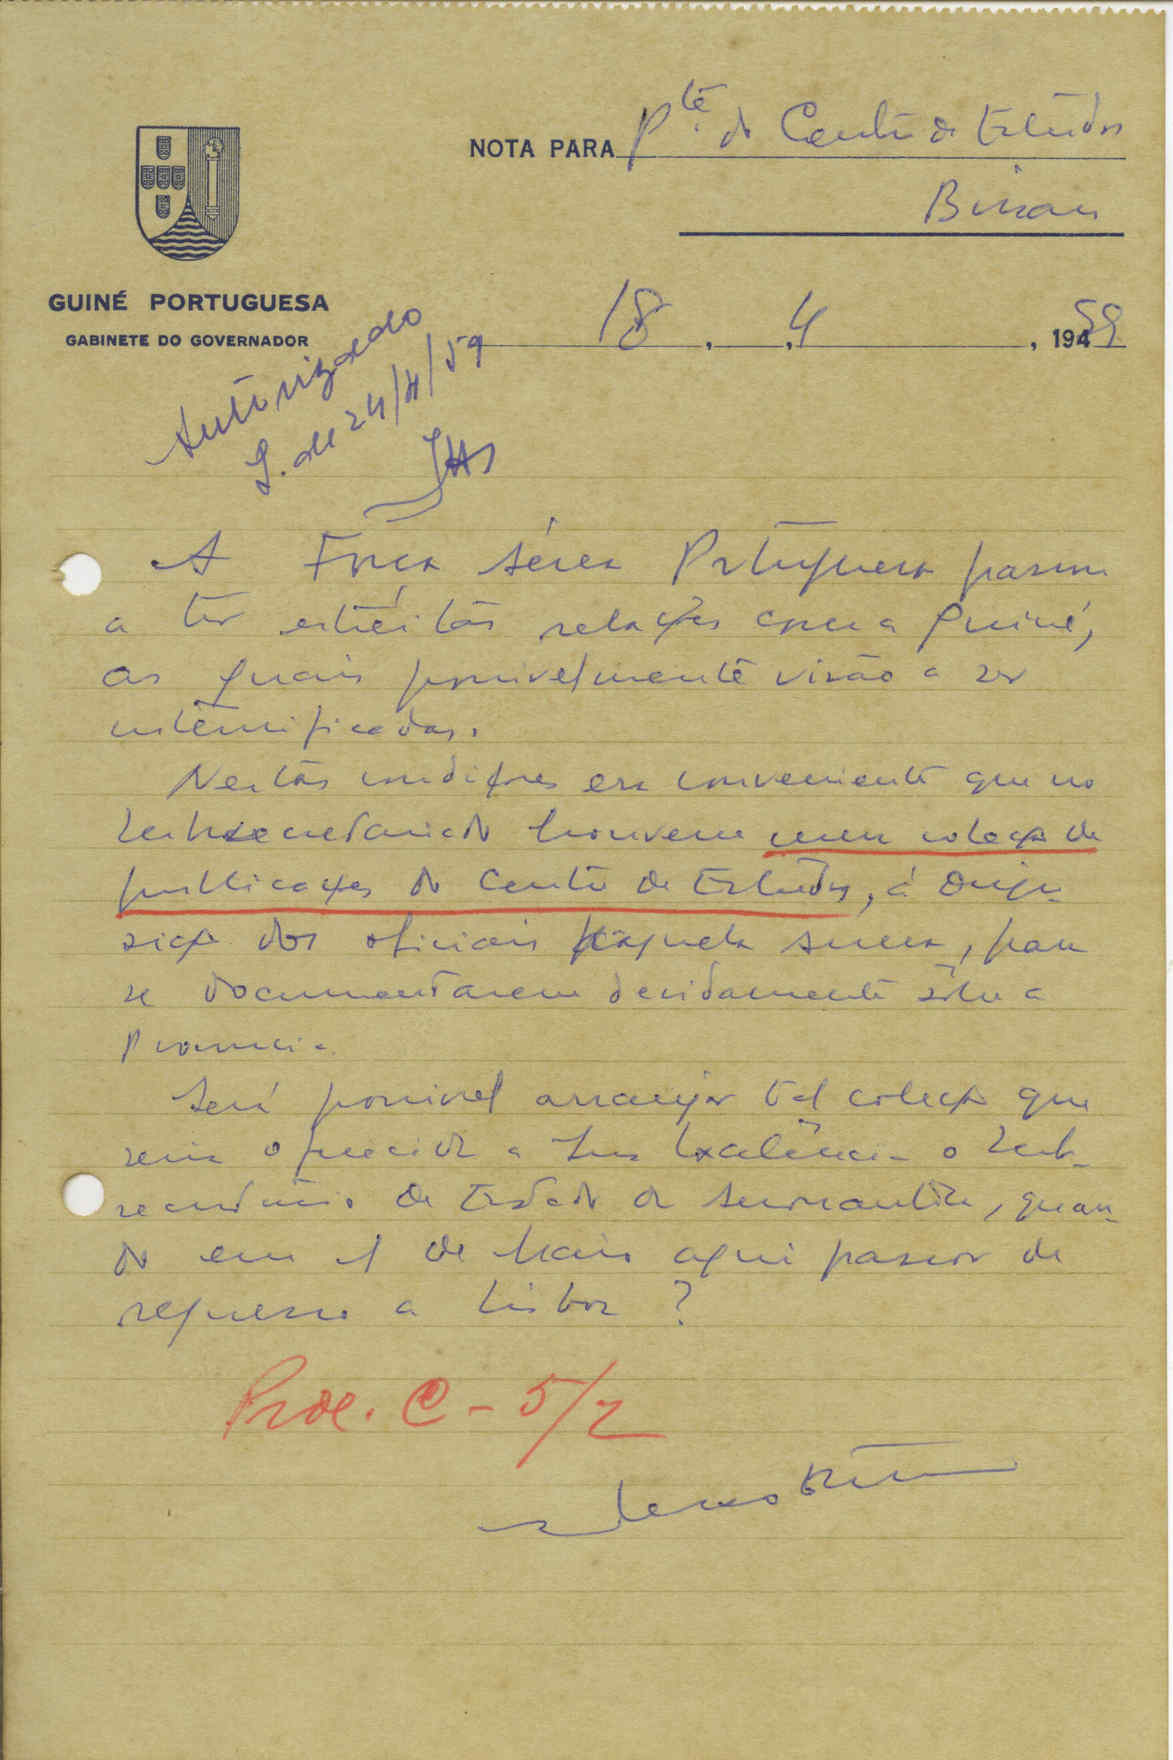 NOTA PARA Pte. do Centro de Estudos
Bissau
GUINÉ PORTUGUESA
GABINETE DO GOVERNADOR
18 , 4 , 1959
Autorizado
S. de 24/4/59
A Força Aérea Portuguesa passou
a ter estreitas relações com a Guiné,
as quais possivelmente virão a ser
intensificadas.
Nestas condições era conveniente que no
Subsecretariado houvesse uma coleção de
publicações do Centro de Estudos, à dispo-
sição dos oficiais daquela Arma, para
se documentarem devidamente sôbre a
Provincia.
Será possivel arranjar tal coleção que
seria oferecida a Sua Excelência o Sub-
secretário de Estado da Aeronautica, quan-
do em 1 de Maio aqui passar de
regresso a Lisboa ?
Proc. C - 5/2